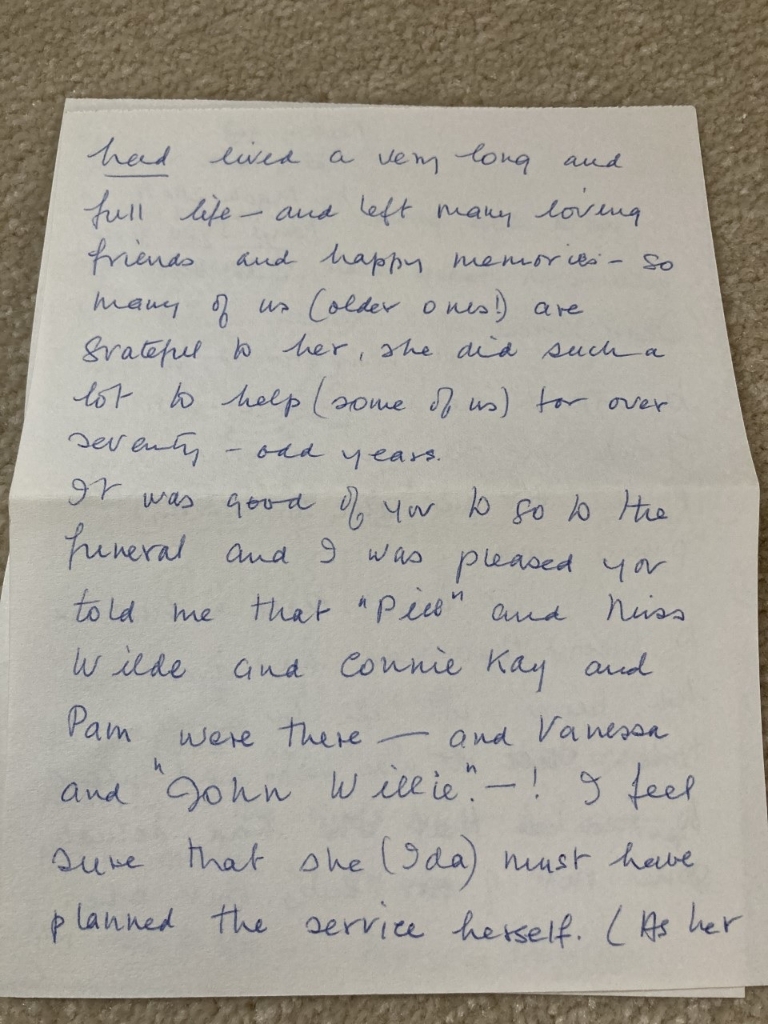 had lived a very long and
full life — and left many loving
friends and happy memories — so
many of us (older ones!) are
grateful to her, she did such a
lot to help (some of us) for over
seventy - odd years.
It was good of you to go to the
funeral and I was pleased you
told me that "Pill" and Miss
Wilde and Connie Kay and
Pam were there — and Vanessa
and "John Willie". — ! I feel
sure that she (Ida) must have
planned the service herself. (As her